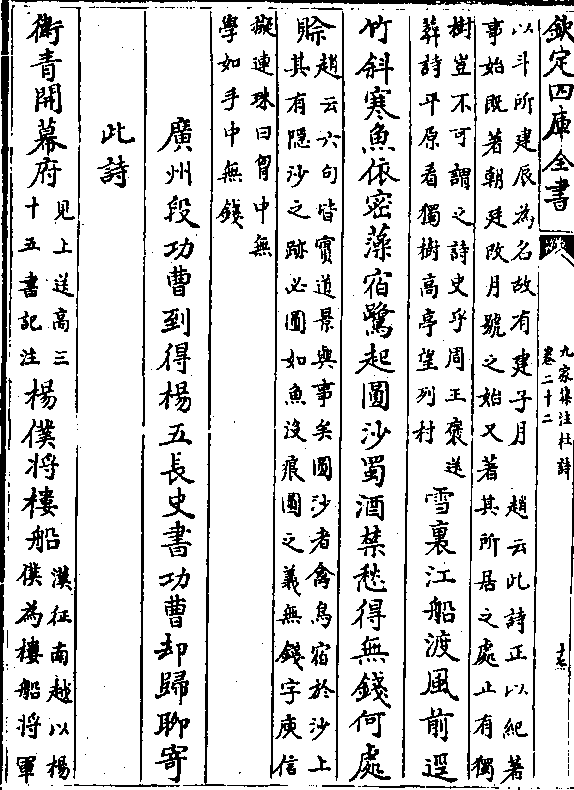 欽定四庫全書
九家集注杜詩
卷二十二
以斗所建辰為名故有建子月　趙云此詩正以紀著
事始既著朝廷改月號之始又著其所居之處止有獨
樹豈不可謂之詩史乎周王褒送
葬詩平原看獨樹高亭望列村
雪裏江船渡風前逕
竹斜寒魚依密藻宿鷺起圓沙蜀酒禁愁得無錢何處
賖
趙云六句皆實道景與事矣圓沙者禽鳥宿於沙上
其有隱沙之跡必圓如魚沒痕圓之義無錢字庾信
擬連珠曰胷中無
學如手中無錢
廣州段功曹到得楊五長史書功曹却歸聊寄
此詩
衛青開幕府
見上送高三
十五書記注
楊僕將樓船
漢征南越以楊
僕為樓船將軍